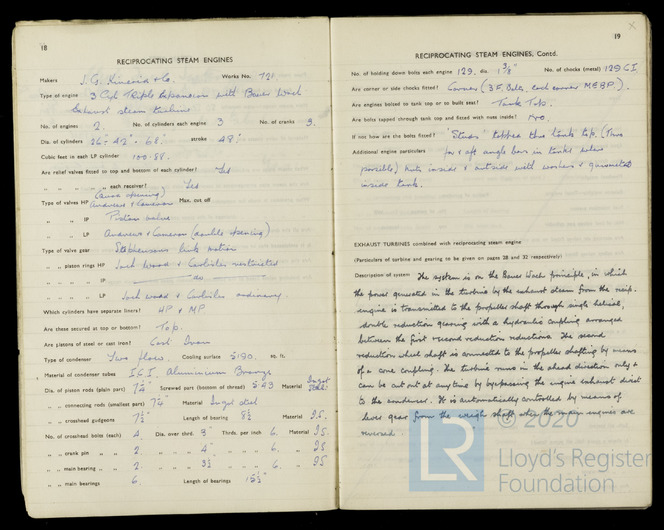 18
RECIPROCATING STEAM ENGINES
Makers J. G. Kincaid & Co. Works No. 121.
Type of engine 3 Cyl Triple Expansion with Bauer Wach
Exhaust steam turbine
No. of engines 2. No. of cylinders each engine 3 No. of cranks 3.
Dia. of cylinders 26" 42" 68" stroke 48"
Cubic feet in each LP cylinder 100.88.
Are relief valves fitted to top and bottom of each cylinder? Yes
" " " " each receiver? Yes
Type of valves HP Andrews & Cameron Max. cut off
" " IP Piston valve
" " LP Andrews & Cameron (double opening)
Type of valve gear Stephensons link motion
" " piston rings HP Lockwood & Carlisle restricted
" " " IP do
" " " LP Lockwood & Carlisle ordinary.
Which cylinders have separate liners? HP & MP
Are these secured at top or bottom? Top.
Are pistons of steel or cast iron? Cast Iron
Type of condenser Two flow. Cooling surface 5190. sq. ft.
Material of condenser tubes I.C.I. Aluminium Brass
Dia. of piston rods (plain part) Screwed part (bottom of thread) 5.93 Material Ingot Steel
" " connecting rods (smallest part) 7¼ Material Ingot steel
" " crosshead gudgeons 7½" Length of bearing 8½ Material I.S.
No. of crosshead bolts (each) 4. Dia. over thrd. 3" Thrds. per inch 6. Material I.S.
" " crank pin " 2. " " " 4" " " " 6. " I.S
" " main bearing " 2. " " " 3½ " " " 6. " I.S
" " main bearings 6. Length of bearings
19
RECIPROCATING STEAM ENGINES, Contd.
No. of holding down bolts each engine 129. dia. 1⅜" No. of chocks (metal) 129 C.I.
Are corner or side chocks fitted? Corner
Are engines bolted to tank top or to built seat? Tank Top.
Are bolts tapped through tank top and fitted with nuts inside? No.
If not how are the bolts fitted? "Studs" tapped thro tank top. (Thro
Additional engine particulars for & aft angle bars in tanks where
possible) Nuts inside & outside with washers & grommets
inside tank.
EXHAUST TURBINES combined with reciprocating steam engine
(Particulars of turbine and gearing to be given on pages 28 and 32 respectively)
Description of system The system is on the Bauer Wach principle, in which
the power generated in the turbine by the exhaust steam from the recip.
engine is transmitted to the propeller shaft through single helical,
double reduction gearing with a hydraulic coupling arranged
between the first & second reduction reductions. The second
reduction wheel shaft is connected to the propeller shafting by means
of a cone coupling. The turbine runs in the ahead direction only &
can be cut out at any time by bypassing the engine exhaust direct
to the condenser. It is automatically controlled by means of
lever gear from the weigh shaft when the main engines are
reversed.
© 2020
LR
Lloyd's Register
Foundation